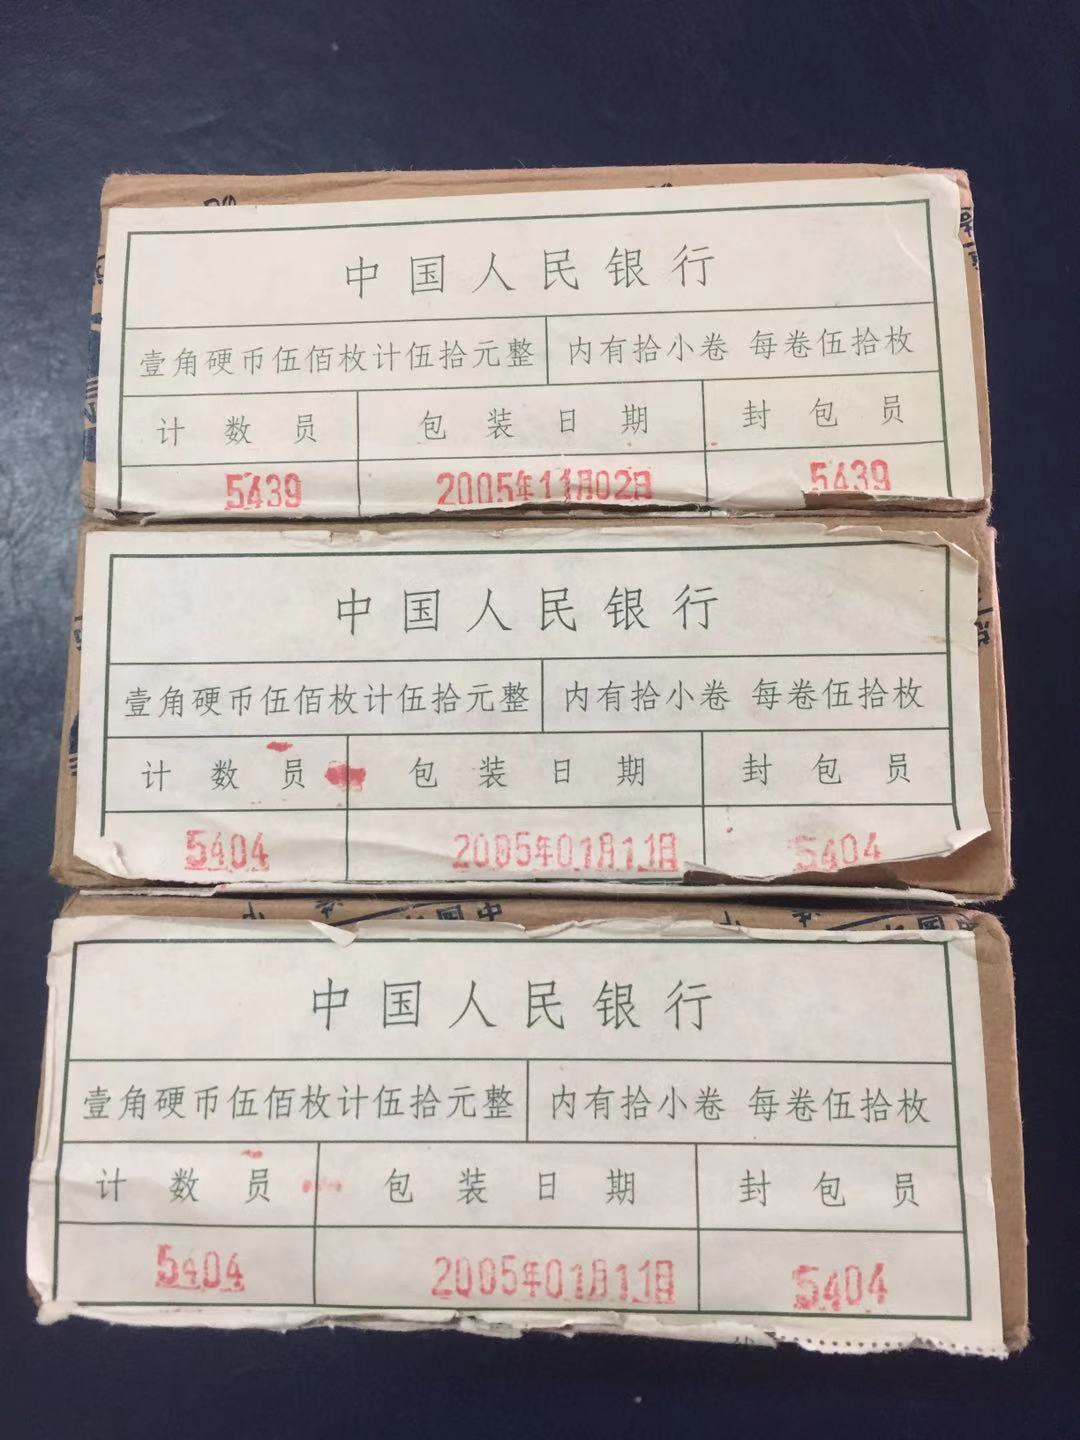 中国人民银行
壹角硬币伍佰枚计伍拾元整 内有拾小卷 每卷伍拾枚
计数员 包装日期 封包员
5439 2005年11月02日 5439
中国人民银行
壹角硬币伍佰枚计伍拾元整 内有拾小卷 每卷伍拾枚
计数员 包装日期 封包员
5404 2005年01月11日 5404
中国人民银行
壹角硬币伍佰枚计伍拾元整 内有拾小卷 每卷伍拾枚
计数员 包装日期 封包员
5404 2005年01月11日 5404